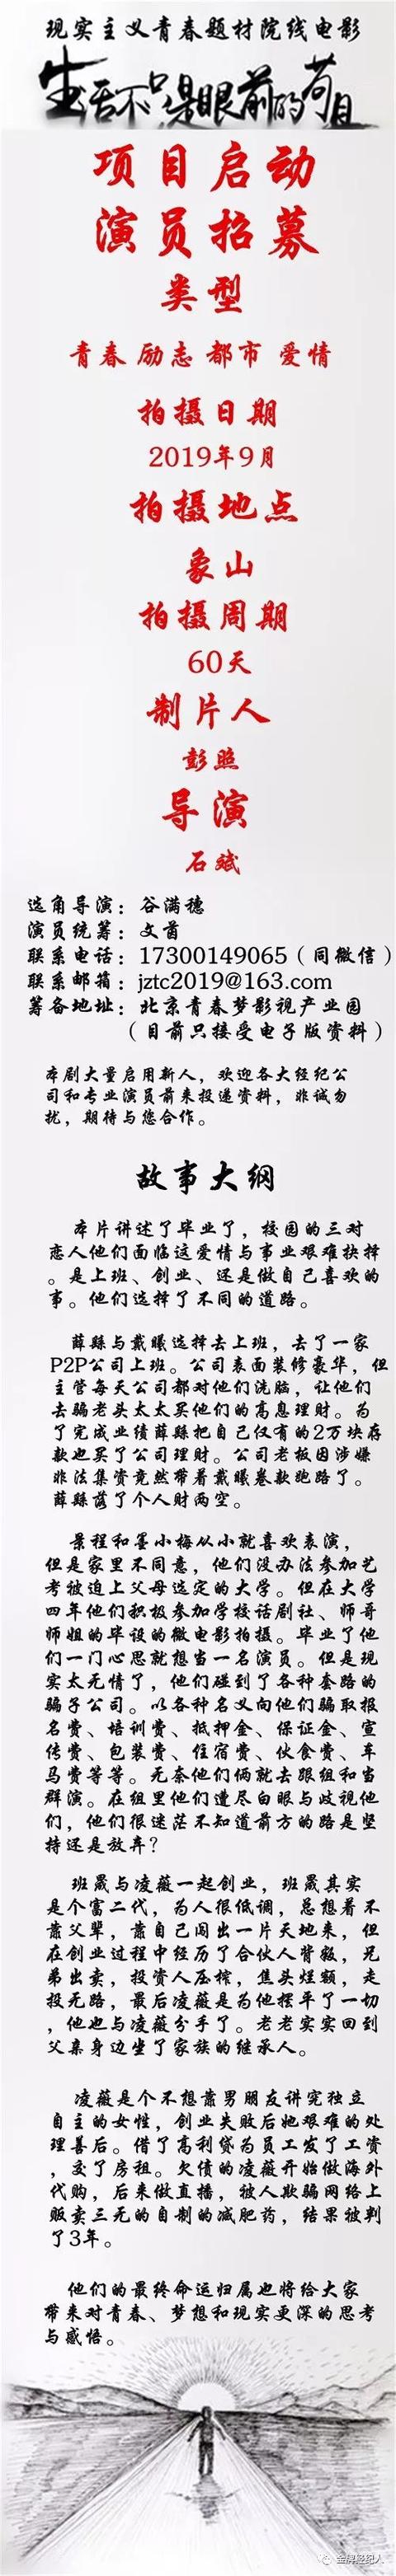 现实主义青春题材院线电影
生活不只是眼前的苟且
项目启动
演员招募
类型
青春 励志 都市 爱情
拍摄日期
2019年9月
拍摄地点
象山
拍摄周期
60天
制片人
彭熙
导演
石斌
选角导演：谷满穗
演员统筹：文首
联系电话：17300149065（同微信）
联系邮箱：jztc2019@163.com
筹备地址：北京青春梦影视产业园
（目前只接受电子版资料）
本剧大量启用新人，欢迎各大经纪公
司和专业演员前来投递资料，非诚勿
扰，期待与您合作。
故事大纲
本片讲述了毕业了，校园的三对
恋人他们面临这爱情与事业艰难抉择
。是上班、创业、还是做自己喜欢的
事。他们选择了不同的道路。
薛縣与戴曦选择去上班，去了一家
P2P公司上班。公司表面装修豪华，但
主管每天公司都对他们洗脑，让他们
去骗老头太太买他们的高息理财。为
了完成业绩薛縣把自己仅有的2万块存
款也买了公司理财。公司老板因涉嫌
非法集资竟然带着戴曦卷款跑路了。
薛縣落了个人财两空。
景程和墨小梅从小就喜欢表演，
但是家里不同意，他们没办法参加艺
考被迫上父母选定的大学。但在大学
四年他们积极参加学校话剧社、师哥
师姐的毕设的微电影拍摄。毕业了他
们一门心思就想当一名演员。但是现
实太无情了，他们碰到了各种套路的
骗子公司。以各种名义向他们骗取报
名费、培训费、抵押金、保证金、宣
传费、包装费、住宿费、伙食费、车
马费等等。无奈他们俩就去跟组和当
群演。在组里他们遭尽白眼与歧视他
们，他们很迷茫不知道前方的路是坚
持还是放弃？
班晟与凌薇一起创业，班晟其实
是个富二代，为人很低调，总想着不
靠父辈，靠自己闯出一片天地来，但
在创业过程中经历了合伙人背叛，兄
弟出卖，投资人压榨，焦头烂额，走
投无路，最后凌薇是为他摆平了一切
，他也与凌薇分手了。老老实实回到
父亲身边坐了家族的继承人。
凌薇是个不想靠男朋友讲究独立
自主的女性，创业失败后她艰难的处
理善后。借了高利贷为员工发了工资
，交了房租。欠债的凌薇开始做海外
代购，后来做直播，被人欺骗网络上
贩卖三无的自制的减肥药，结果被判
了3年。
他们的最终命运归属也将给大家
带来对青春、梦想和现实更深的思考
与感悟。
金牌经纪人